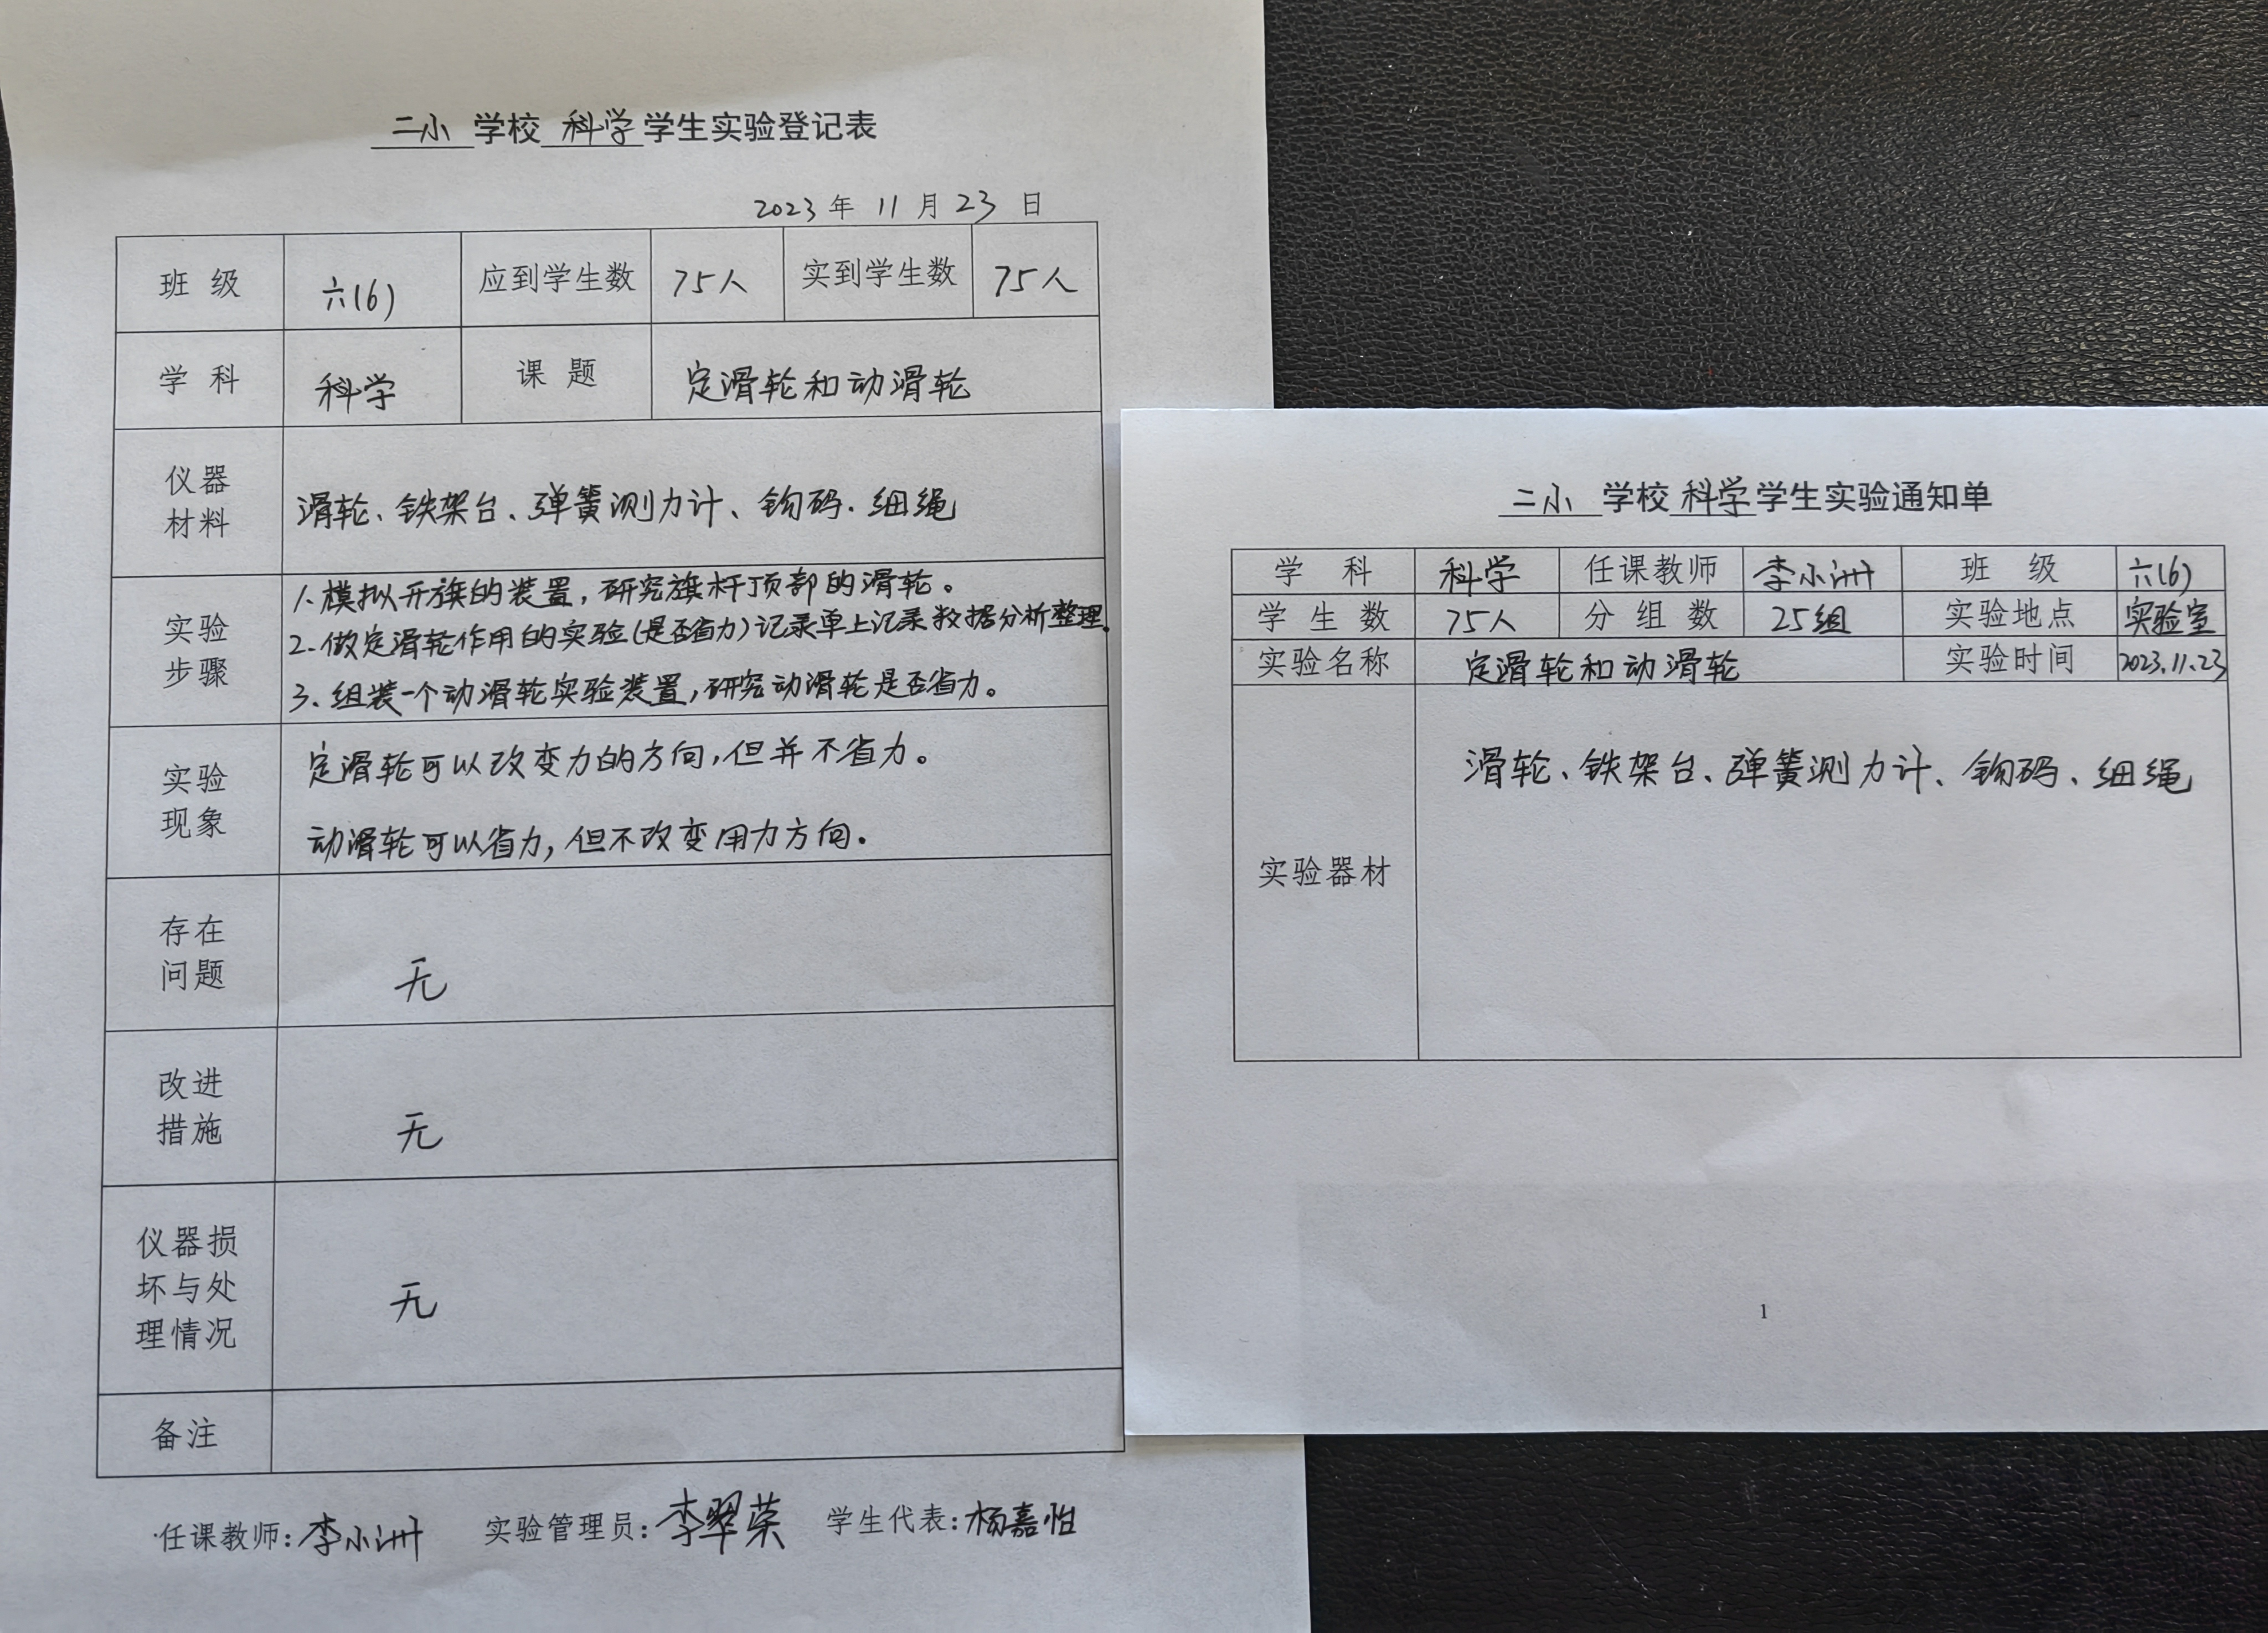 二小 学校 科学 学生实验登记表
2023 年 11 月 23 日
班 级 六(6) 应到学生数 75人 实到学生数 75人
学 科 科学 课 题 定滑轮和动滑轮
仪器
材料
滑轮、铁架台、弹簧测力计、钩码、细绳
实验
步骤
1、模拟升旗的装置，研究旗杆顶部的滑轮。
2、做定滑轮作用的实验(是否省力)记录单上记录数据分析整理。
3、组装一个动滑轮实验装置，研究动滑轮是否省力。
实验
现象
定滑轮可以改变力的方向，但并不省力。
动滑轮可以省力，但不改变用力方向。
存在
问题
无
改进
措施
无
仪器损
坏与处
理情况
无
备注
任课教师：李小洲 实验管理员：李翠荣 学生代表：杨嘉怡
二小 学校 科学 学生实验通知单
学 科 科学 任课教师 李小洲 班 级 六(6)
学 生 数 75人 分 组 数 25组 实验地点 实验室
实验名称 定滑轮和动滑轮 实验时间 2023.11.23
实验器材
滑轮、铁架台、弹簧测力计、钩码、细绳
1